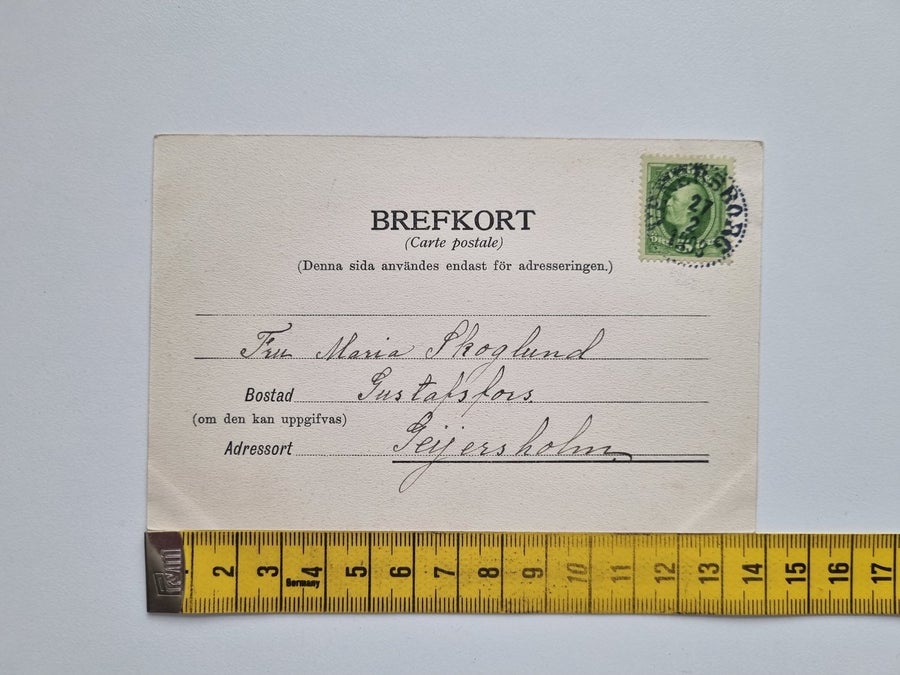 BREFKORT
(Carte postale)
(Denna sida användes endast för adresseringen.)
27
2
Fru Maria Skoglund
Bostad Gustafsfors.
(om den kan uppgifvas)
Adressort Geijersholm
2 3 4 5 6 7 8 9 10 11 12 13 14 15 16 17
Germany